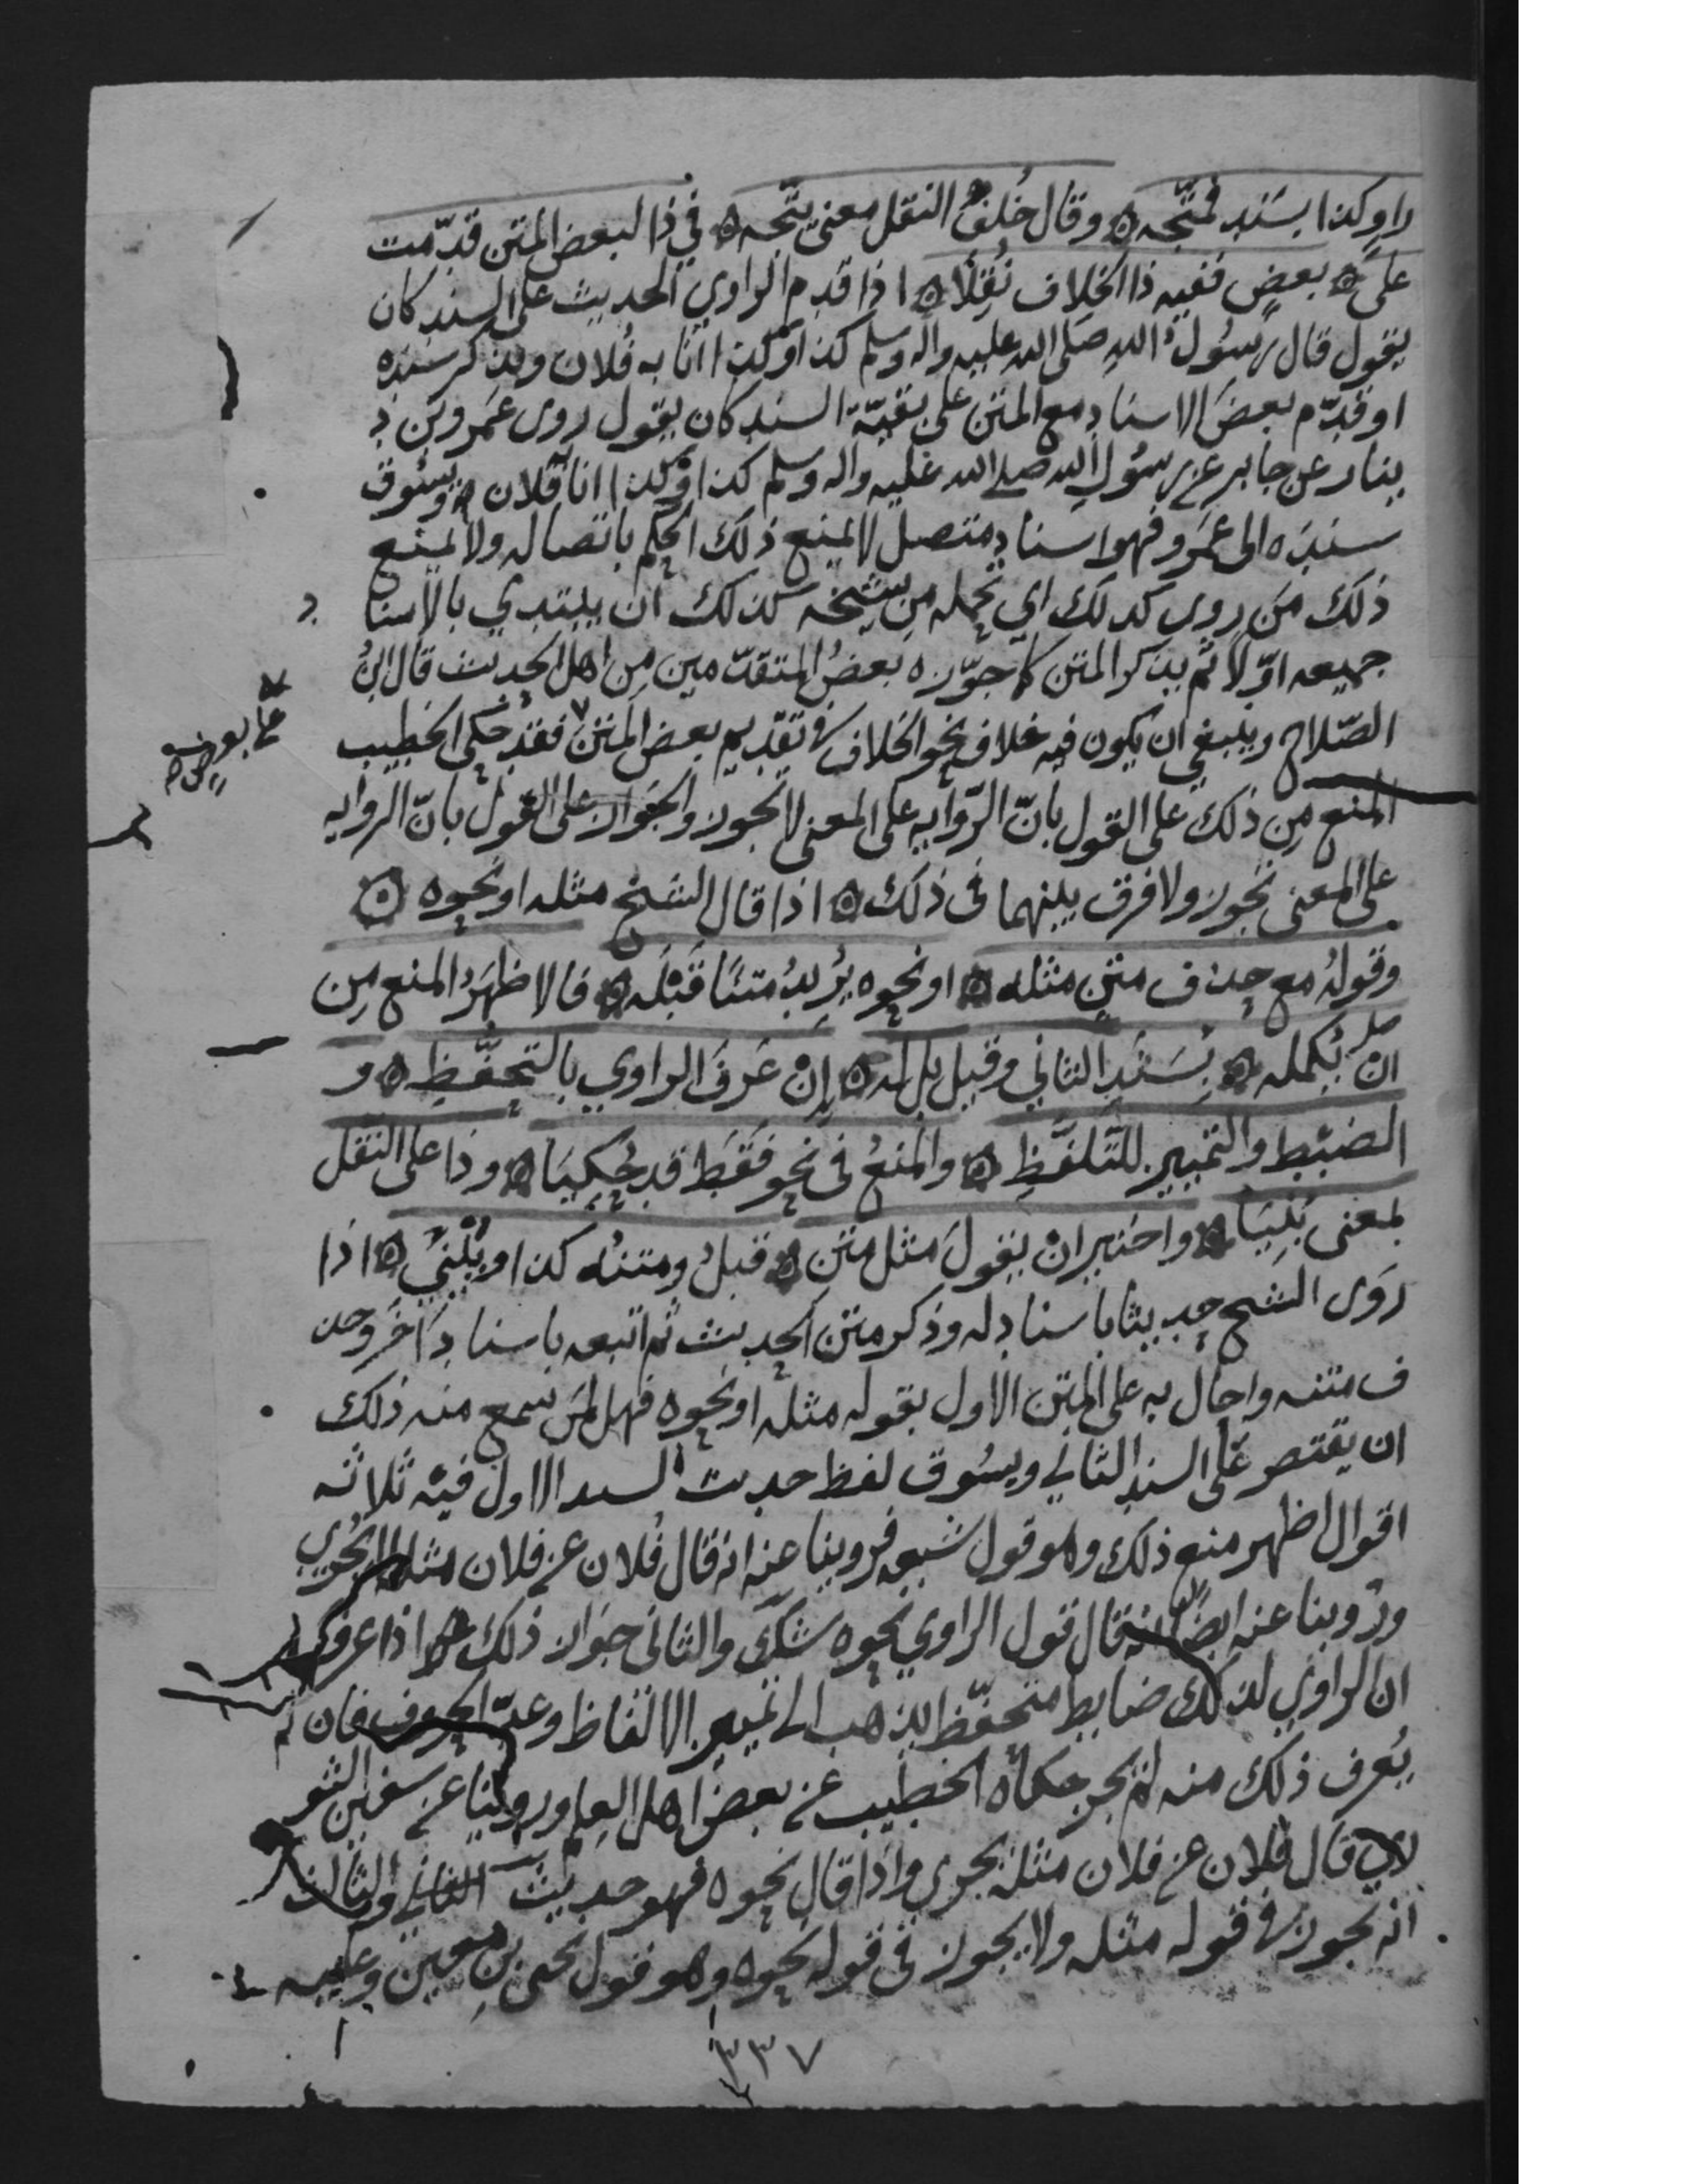 راو كذا بسند فمتجه ٥ وقال خلف النقل معنى يتجه ٥ في ذا لبعض المتن قدمت
على ٥ بعض ففيه ذا الخلاف نقلا ٥ اذا قدم الراوي الحديث على السند كان
يقول قال رسول الله صلى الله عليه واله وسلم كذا وكذا انا به فلان ويذكر سنده
او قدم بعض الاسناد مع المتن على بقية السند كان يقول روى عمرو بن د
ينار عن جابر عن رسول الله صلى الله عليه واله وسلم كذا وكذا انا فلان ويسوق
سنده الى عمرو فهو اسناد متصل لا يمنع ذلك الحكم باتصاله ولا يمنع
ذلك من روى كذلك اي تحمله من شيخه كذلك ان يبتدي بالاسنا د
جميعه اولا ثم يذكر المتن كما جوزه بعض المتقدمين من اهل الحديث قال ابن
الصلاح وينبغي ان يكون فيه خلاف نحو الخلاف في تقديم بعض المتن فقد حكى الخطيب
المنع من ذلك على القول بان الروايه على المعنى لا تجوز والجواز على القول بان الروايه
على المعنى تجوز ولا فرق بينهما في ذلك ٥ اذا قال الشيخ مثله او نحوه ٥
وقوله مع حذف متن مثله ٥ او نحوه يريد متنا قبله ٥ فالاظهر المنع من
ان يكمله ٥ بسند الثاني وقيل بل له ٥ إن عرف الراوي بالتحفظ ٥ و
الضبط والتمييز للتلفظ ٥ والمنع في نحو فقط قد حكيا ٥ وذا على النقل
بمعنى بنيا ٥ واختير ان يقول مثل متن ٥ قبل ومتنه كذا ويبني ٥ اذا
روى الشيخ حديثا باسناد له وذكر متن الحديث ثم اتبعه باسناد آخر وحذ
ف متنه واحال به على المتن الاول بقوله مثله او نحوه فهل لمن سمع منه ذلك
ان يقتصر على السند الثاني ويسوق لفظ حديث السند الاول فيه ثلاثه
اقوال اظهر منع ذلك وهو قول شعبه فروينا عنه انه قال فلان عن فلان مثله لا يجزي
وروينا عنه ايضا انه قال قول الراوي نحوه شك والثاني جواز ذلك اذا عرف
ان الراوي لذلك ضابط متحفظ يذهب الى تمييز الالفاظ وعد الحروف فان لم
يعرف ذلك منه لم يجز حكاه الخطيب عن بعض اهل العلم وروينا عن سفين الثو
ري قال فلان عن فلان مثله يجزي واذا قال نحوه فهو حديث والثالث
انه يجوز في قوله مثله ولا يجوز في قوله نحوه وهو قول يحيى بن معين وعليه
٣٣٧